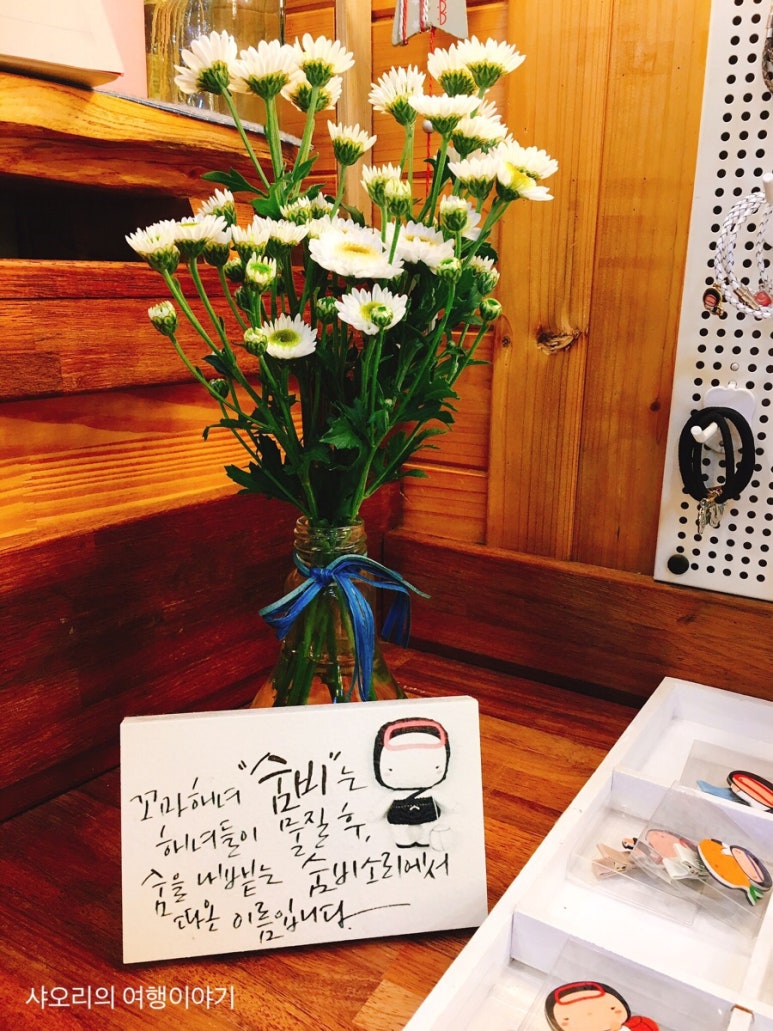 꼬마해녀 "숨비"는
해녀들이 물질 후,
숨을 내뱉는 숨비소리에서
따온 이름입니다.
샤오리의 여행이야기